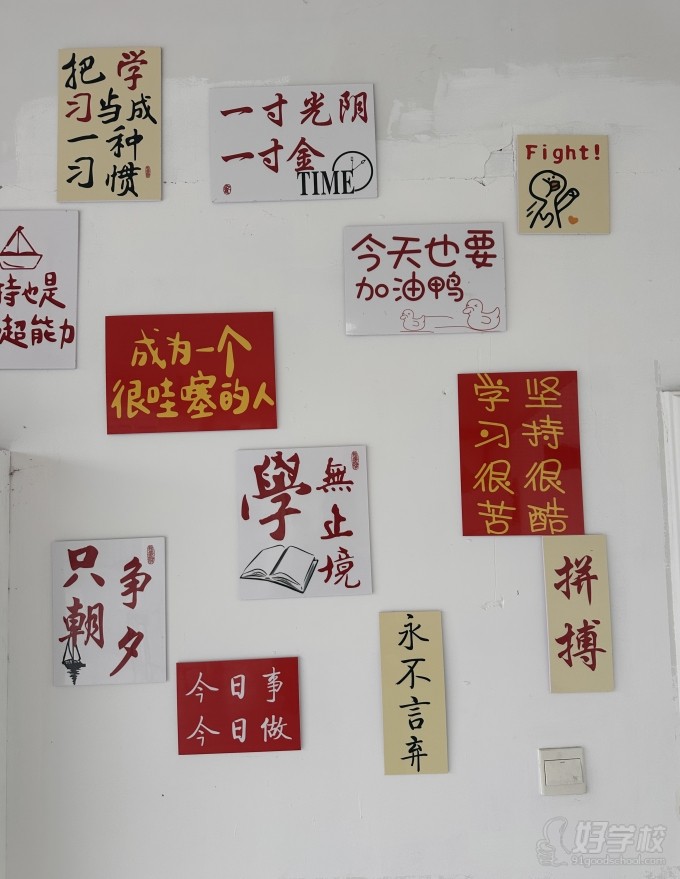 把学
习当成
一种
习惯
一寸光阴
一寸金
TIME
Fight!
持也是
超能力
今天也要
加油鸭
成为一个
很哇塞的人
学习很苦
坚持很酷
學
無止境
只争
朝夕
拼搏
今日事
今日做
永不言弃
好学校
91goodschool.com